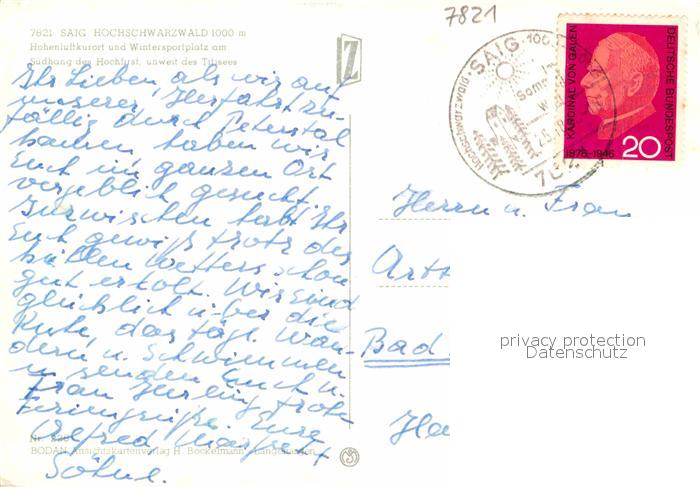 7821
7821 SAIG HOCHSCHWARZWALD 1000 m
Höhenluftkurort und Wintersportplatz am
Südhang des Hochfirst, unweit des Titisees
Z
Ihr Lieben als wir auf
unserer Herfahrt zu-
fällig durch Peterstal
kamen haben wir
Euch im ganzen Ort
vergeblich gesucht.
Inzwischen habt Ihr
Euch gewiß trotz des
kühlen Wetters schon
gut erholt. Wir sind
glücklich über die
Ruhe, das tägl. Wan-
dern u. Schwimmen
u. senden Euch u.
Frau frohe
Feriengrüße. Eure
Alfred Margret
Söhne.
Nr.
BODAN-Ansichtskartenverlag H. Bockelmann, Langenhagen
SAIG
Hochschwarzwald
KARDINAL VON GALEN
DEUTSCHE BUNDESPOST
1878-1946
20
Herrn u. Frau
Bad
privacy protection
Datenschutz